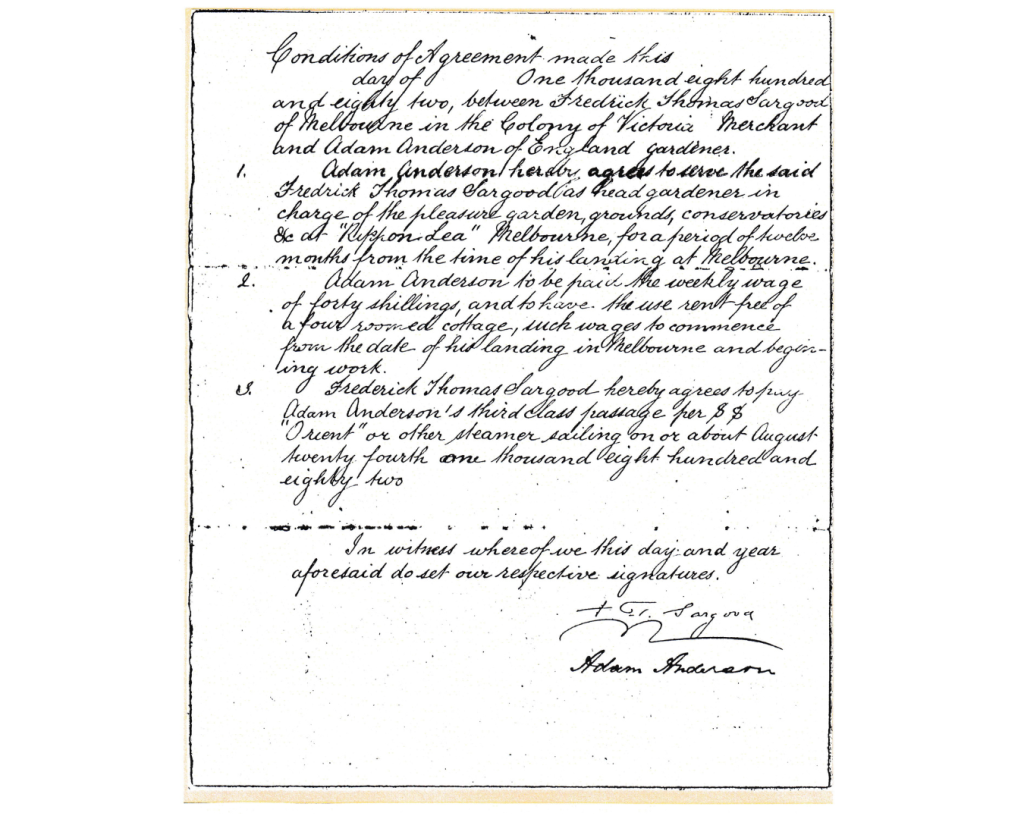 Conditions of Agreement made this
day of One thousand eight hundred
and eighty two, between Fredrick Thomas Sargood
of Melbourne in the Colony of Victoria Merchant
and Adam Anderson of England gardener.
1. Adam Anderson hereby agrees to serve the said
Fredrick Thomas Sargood as head gardener in
charge of the pleasure garden, grounds, conservatories
&c at "Rippon Lea" Melbourne, for a period of twelve
months from the time of his landing at Melbourne.
2. Adam Anderson to be paid the weekly wage
of forty shillings, and to have the use rent free of
a four roomed cottage, such wages to commence
from the date of his landing in Melbourne and begin-
ing work.
3. Frederick Thomas Sargood hereby agrees to pay
Adam Anderson's third class passage per SS
"Orient" or other steamer sailing on or about August
twenty fourth one thousand eight hundred and
eighty two
In witness whereof we this day and year
aforesaid do set our respective signatures.
F. T. Sargood
Adam Anderson